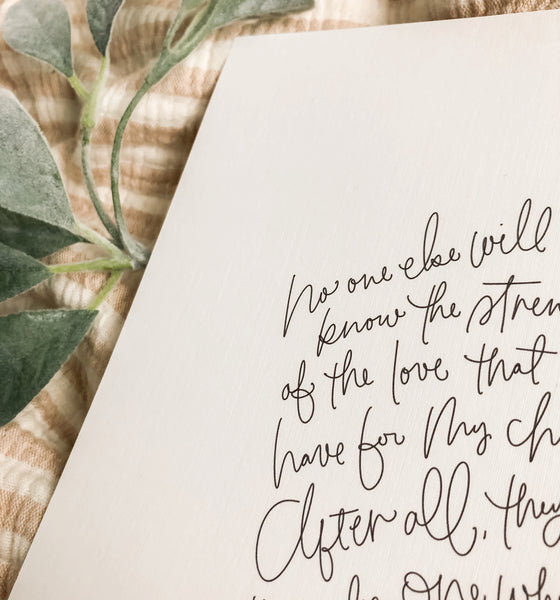 No one else will
know the stren
of the love that
have for my ch
After all, they
one wh